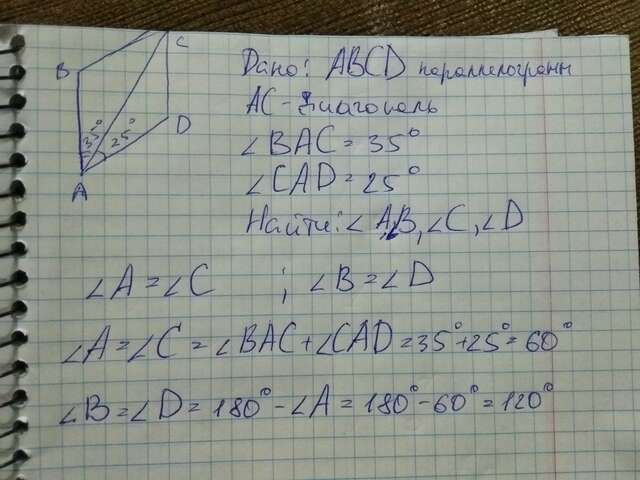 C
B
35° 25°
D
A
Дано: ABCD параллелограмм
AC - диагональ
∠BAC = 35°
∠CAD = 25°
Найти: ∠A, ∠B, ∠C, ∠D
∠A = ∠C ; ∠B = ∠D
∠A = ∠C = ∠BAC + ∠CAD = 35° + 25° = 60°
∠B = ∠D = 180° - ∠A = 180° - 60° = 120°